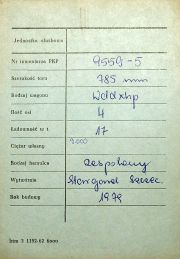 Jednostka służbowa
Nr inwentarza PKP 9559-5
Szerokość toru 785 mm
Rodzaj wagonu Wddxhp
Ilość osi 4
Ładowność w t. 17
Ciężar własny 9000
Rodzaj hamulca zespolony
Wytwórnia Stargard Szczec.
Rok budowy 1979